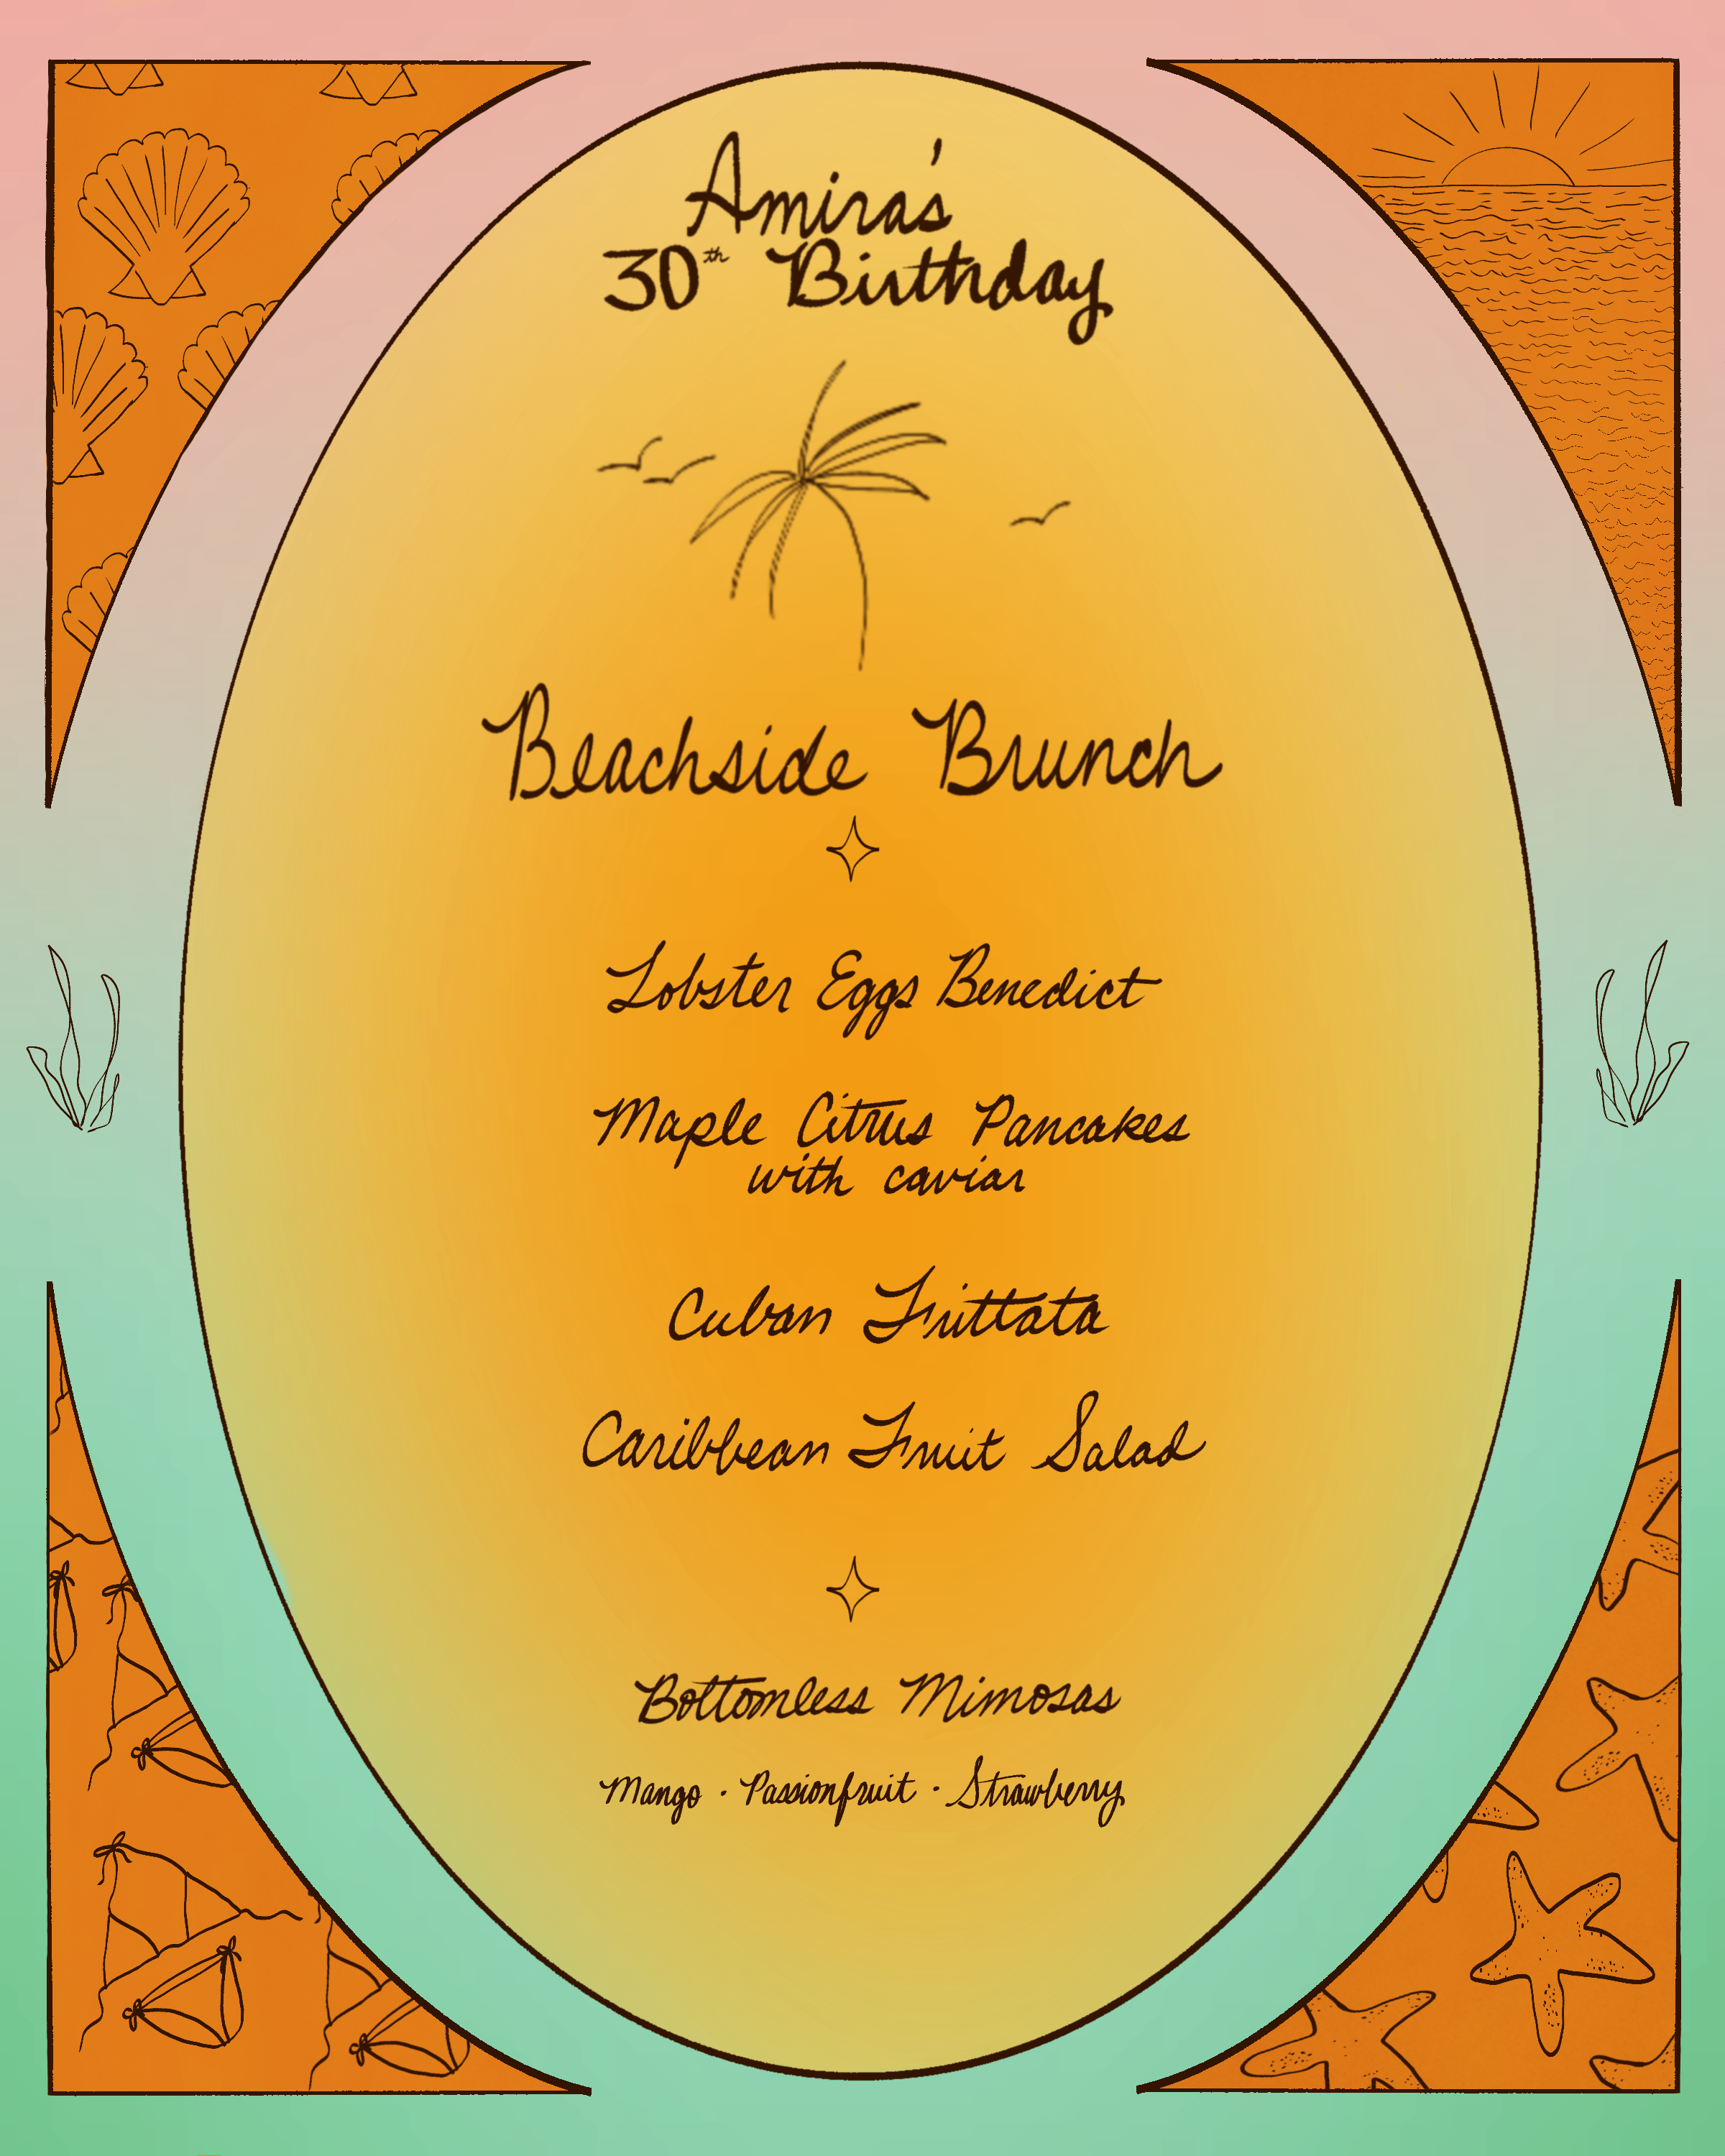 Amira's
30th Birthday
Beachside Brunch
Lobster Eggs Benedict
Maple Citrus Pancakes
with caviar
Cuban Frittata
Caribbean Fruit Salad
Bottomless Mimosas
Mango · Passionfruit · Strawberry